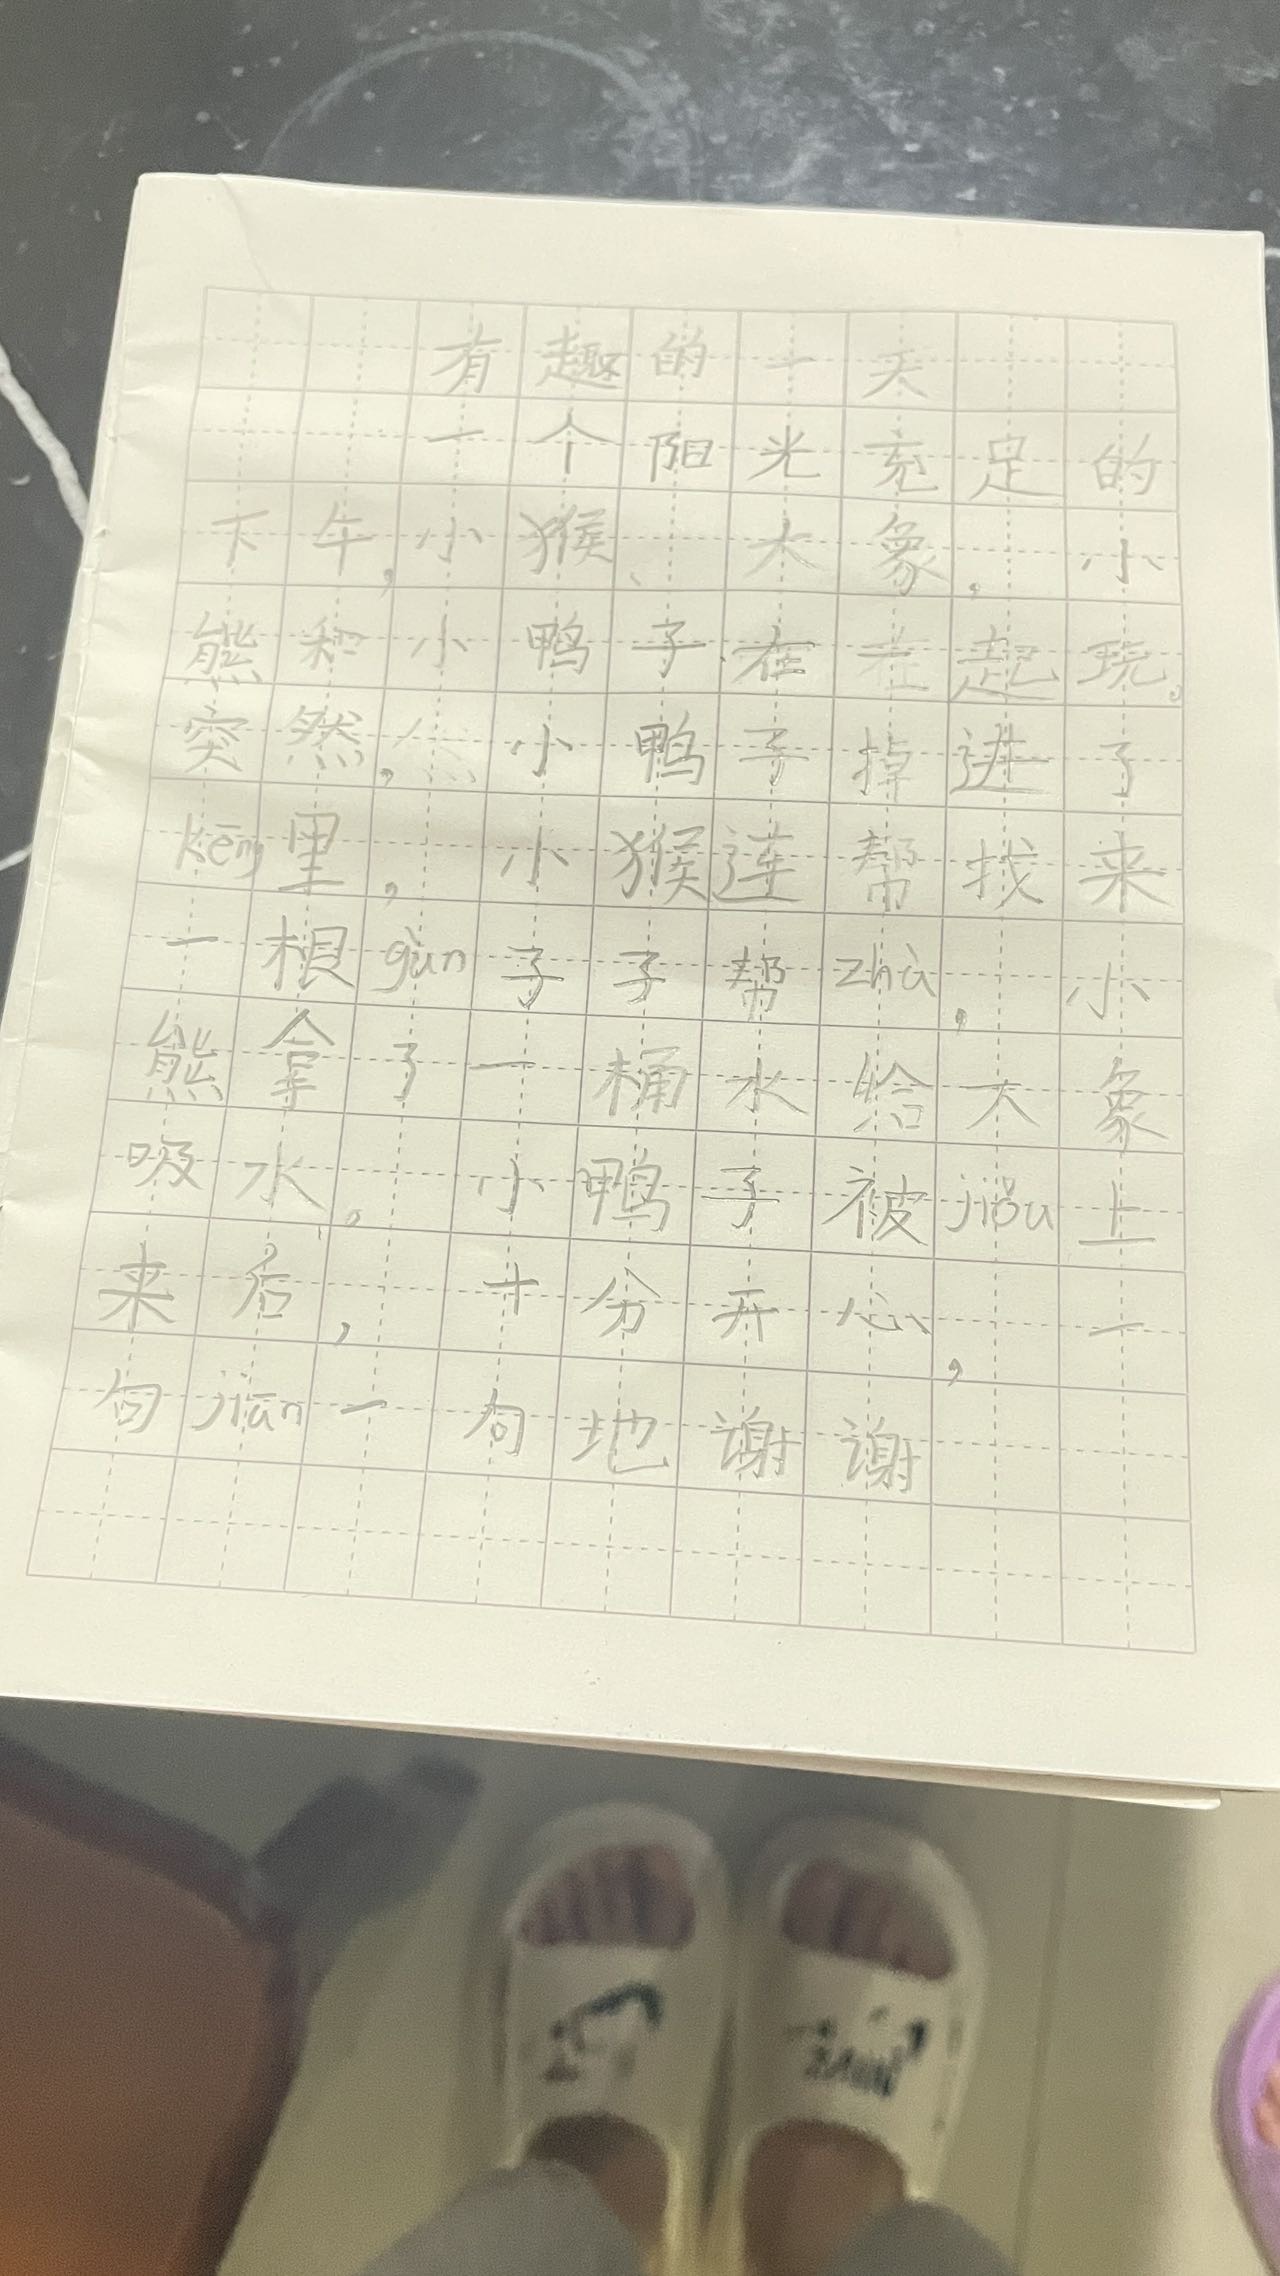 有趣的一天
一个阳光充足的
下午,小猴、大象,小
熊和小鸭子在在起玩。
突然,小鸭子掉进了
kēng里,小猴连帮找来
一根gùn子子帮zhù,小
熊拿了一桶水给大象
吸水。小鸭子被jiǒu上
来后,十分开心,一
句jiān一句地谢谢